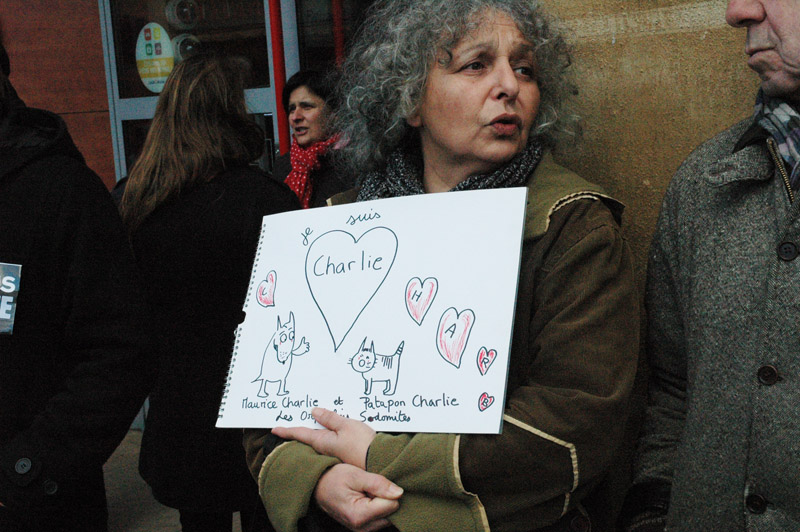 je suis
Charlie
C
H
A
R
B
Maurice Charlie et Patapon Charlie
Les Sodomites
S
E